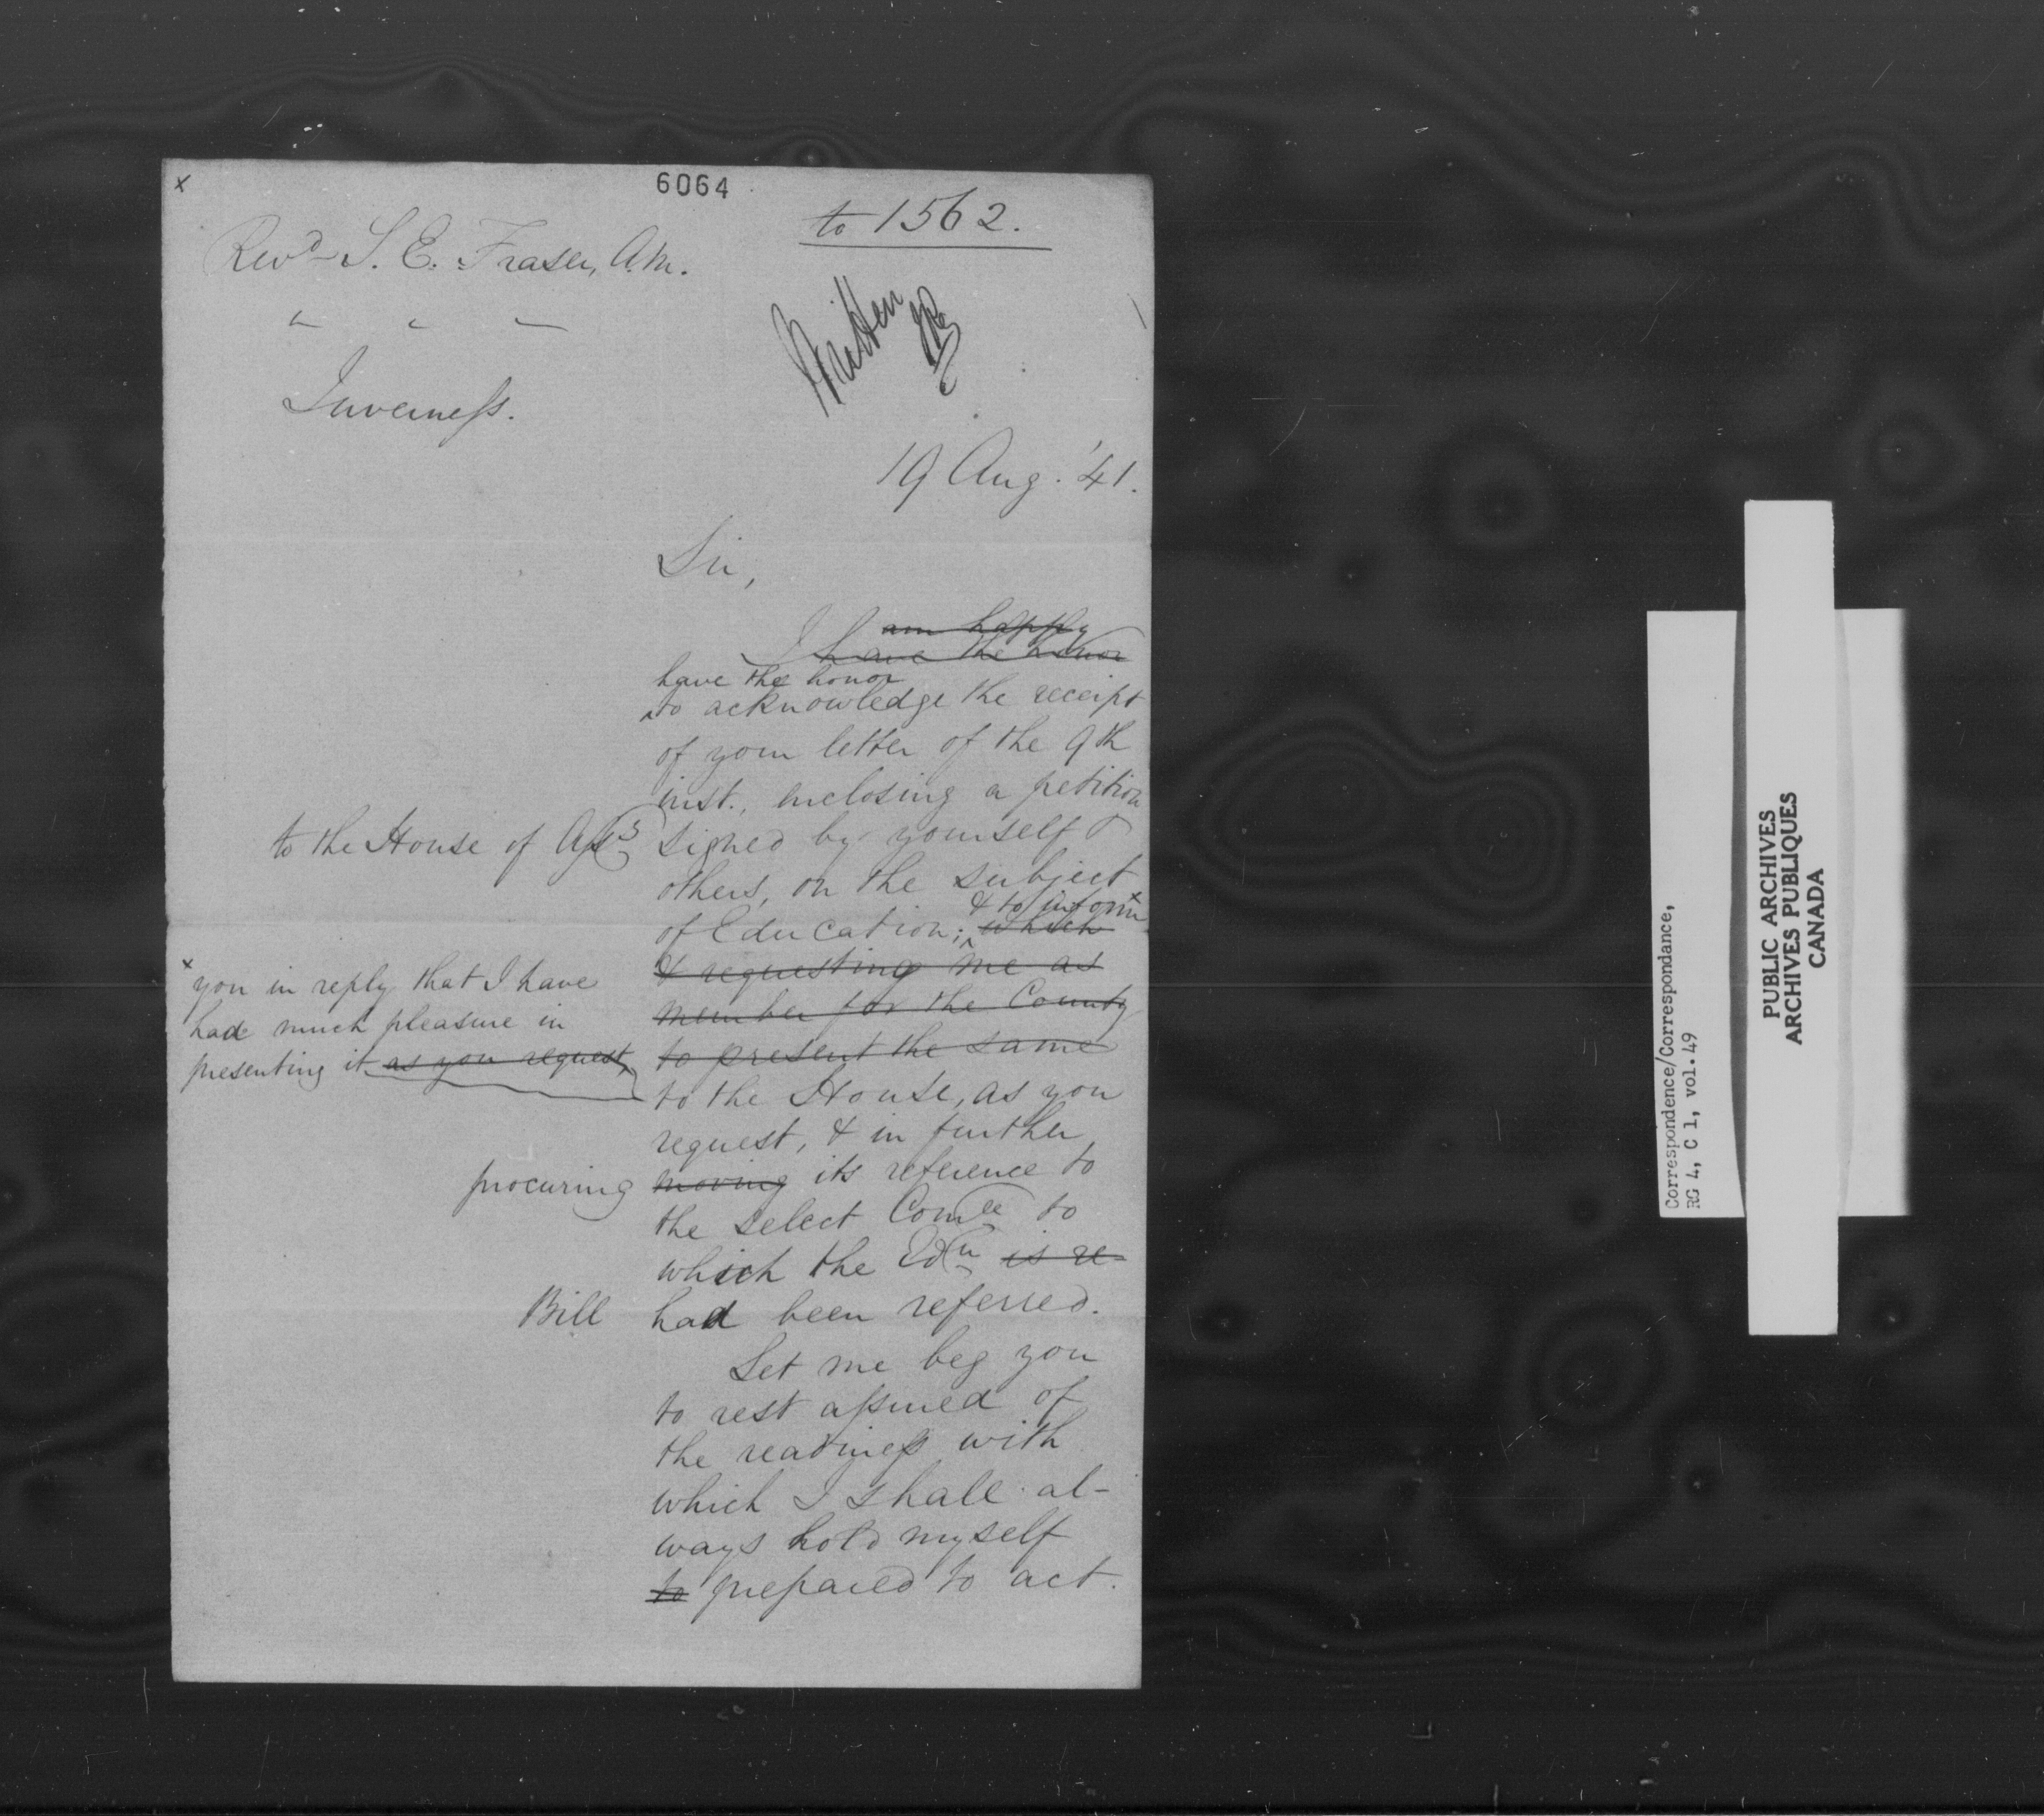 x
6064
to 1562.
Revd S. E. Fraser, A.M.
" " "
Inverness.
Written
19 Aug. '41.
Sir,
am happy
I have the honor
have the honor
to acknowledge the receipt
of your letter of the 9th
inst., enclosing a petition
to the House of Assy
signed by yourself &
others, on the subject
& to inform x
of Education; which
& requesting me as
member for the County
to present the same
x you in reply that I have
had much pleasure in
presenting it as you request,
to the House, as you
request, & in further
procuring moving its reference to
the select Comee to
which the Edn is re-
Bill had been referred.
Let me beg you
to rest assured of
the readiness with
which I shall al-
ways hold myself
to prepared to act.
Correspondence/Correspondance,
RG 4, C 1, vol.49
PUBLIC ARCHIVES
ARCHIVES PUBLIQUES
CANADA